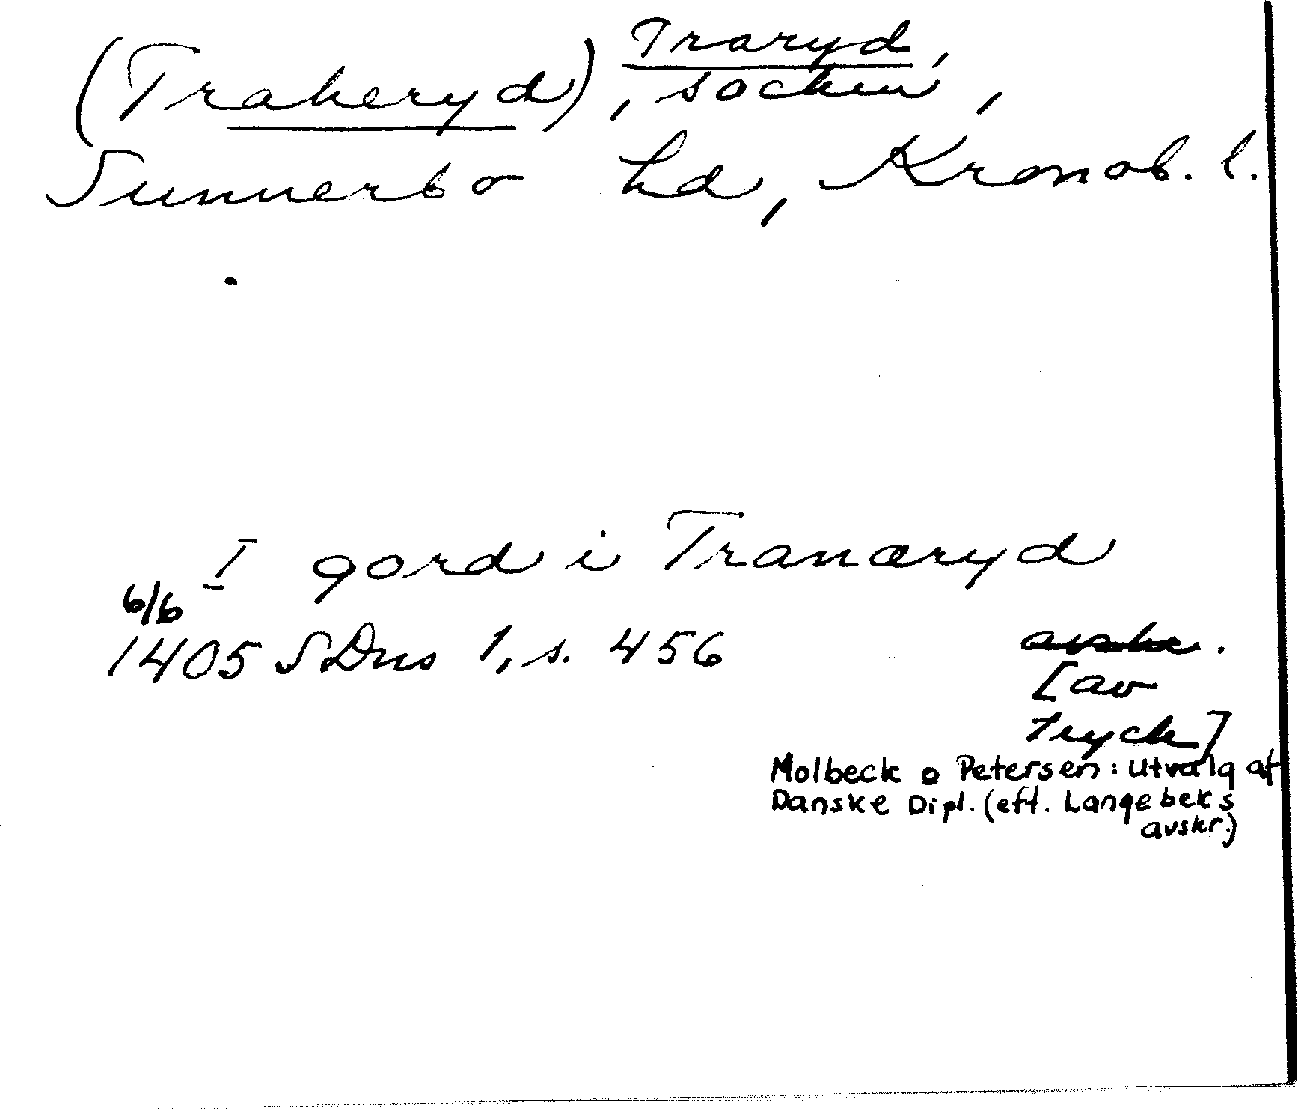 Traryd,
(Traheryd), socken,
Sunnerbo hd, Kronob. l.
I gord i Tranæryd
6/6
1405 SDns 1, s. 456
avskr.
[av
tryck]
Molbeck o Petersen: Utvalg af
Danske Dipl. (eft. Langebeks
avskr.)